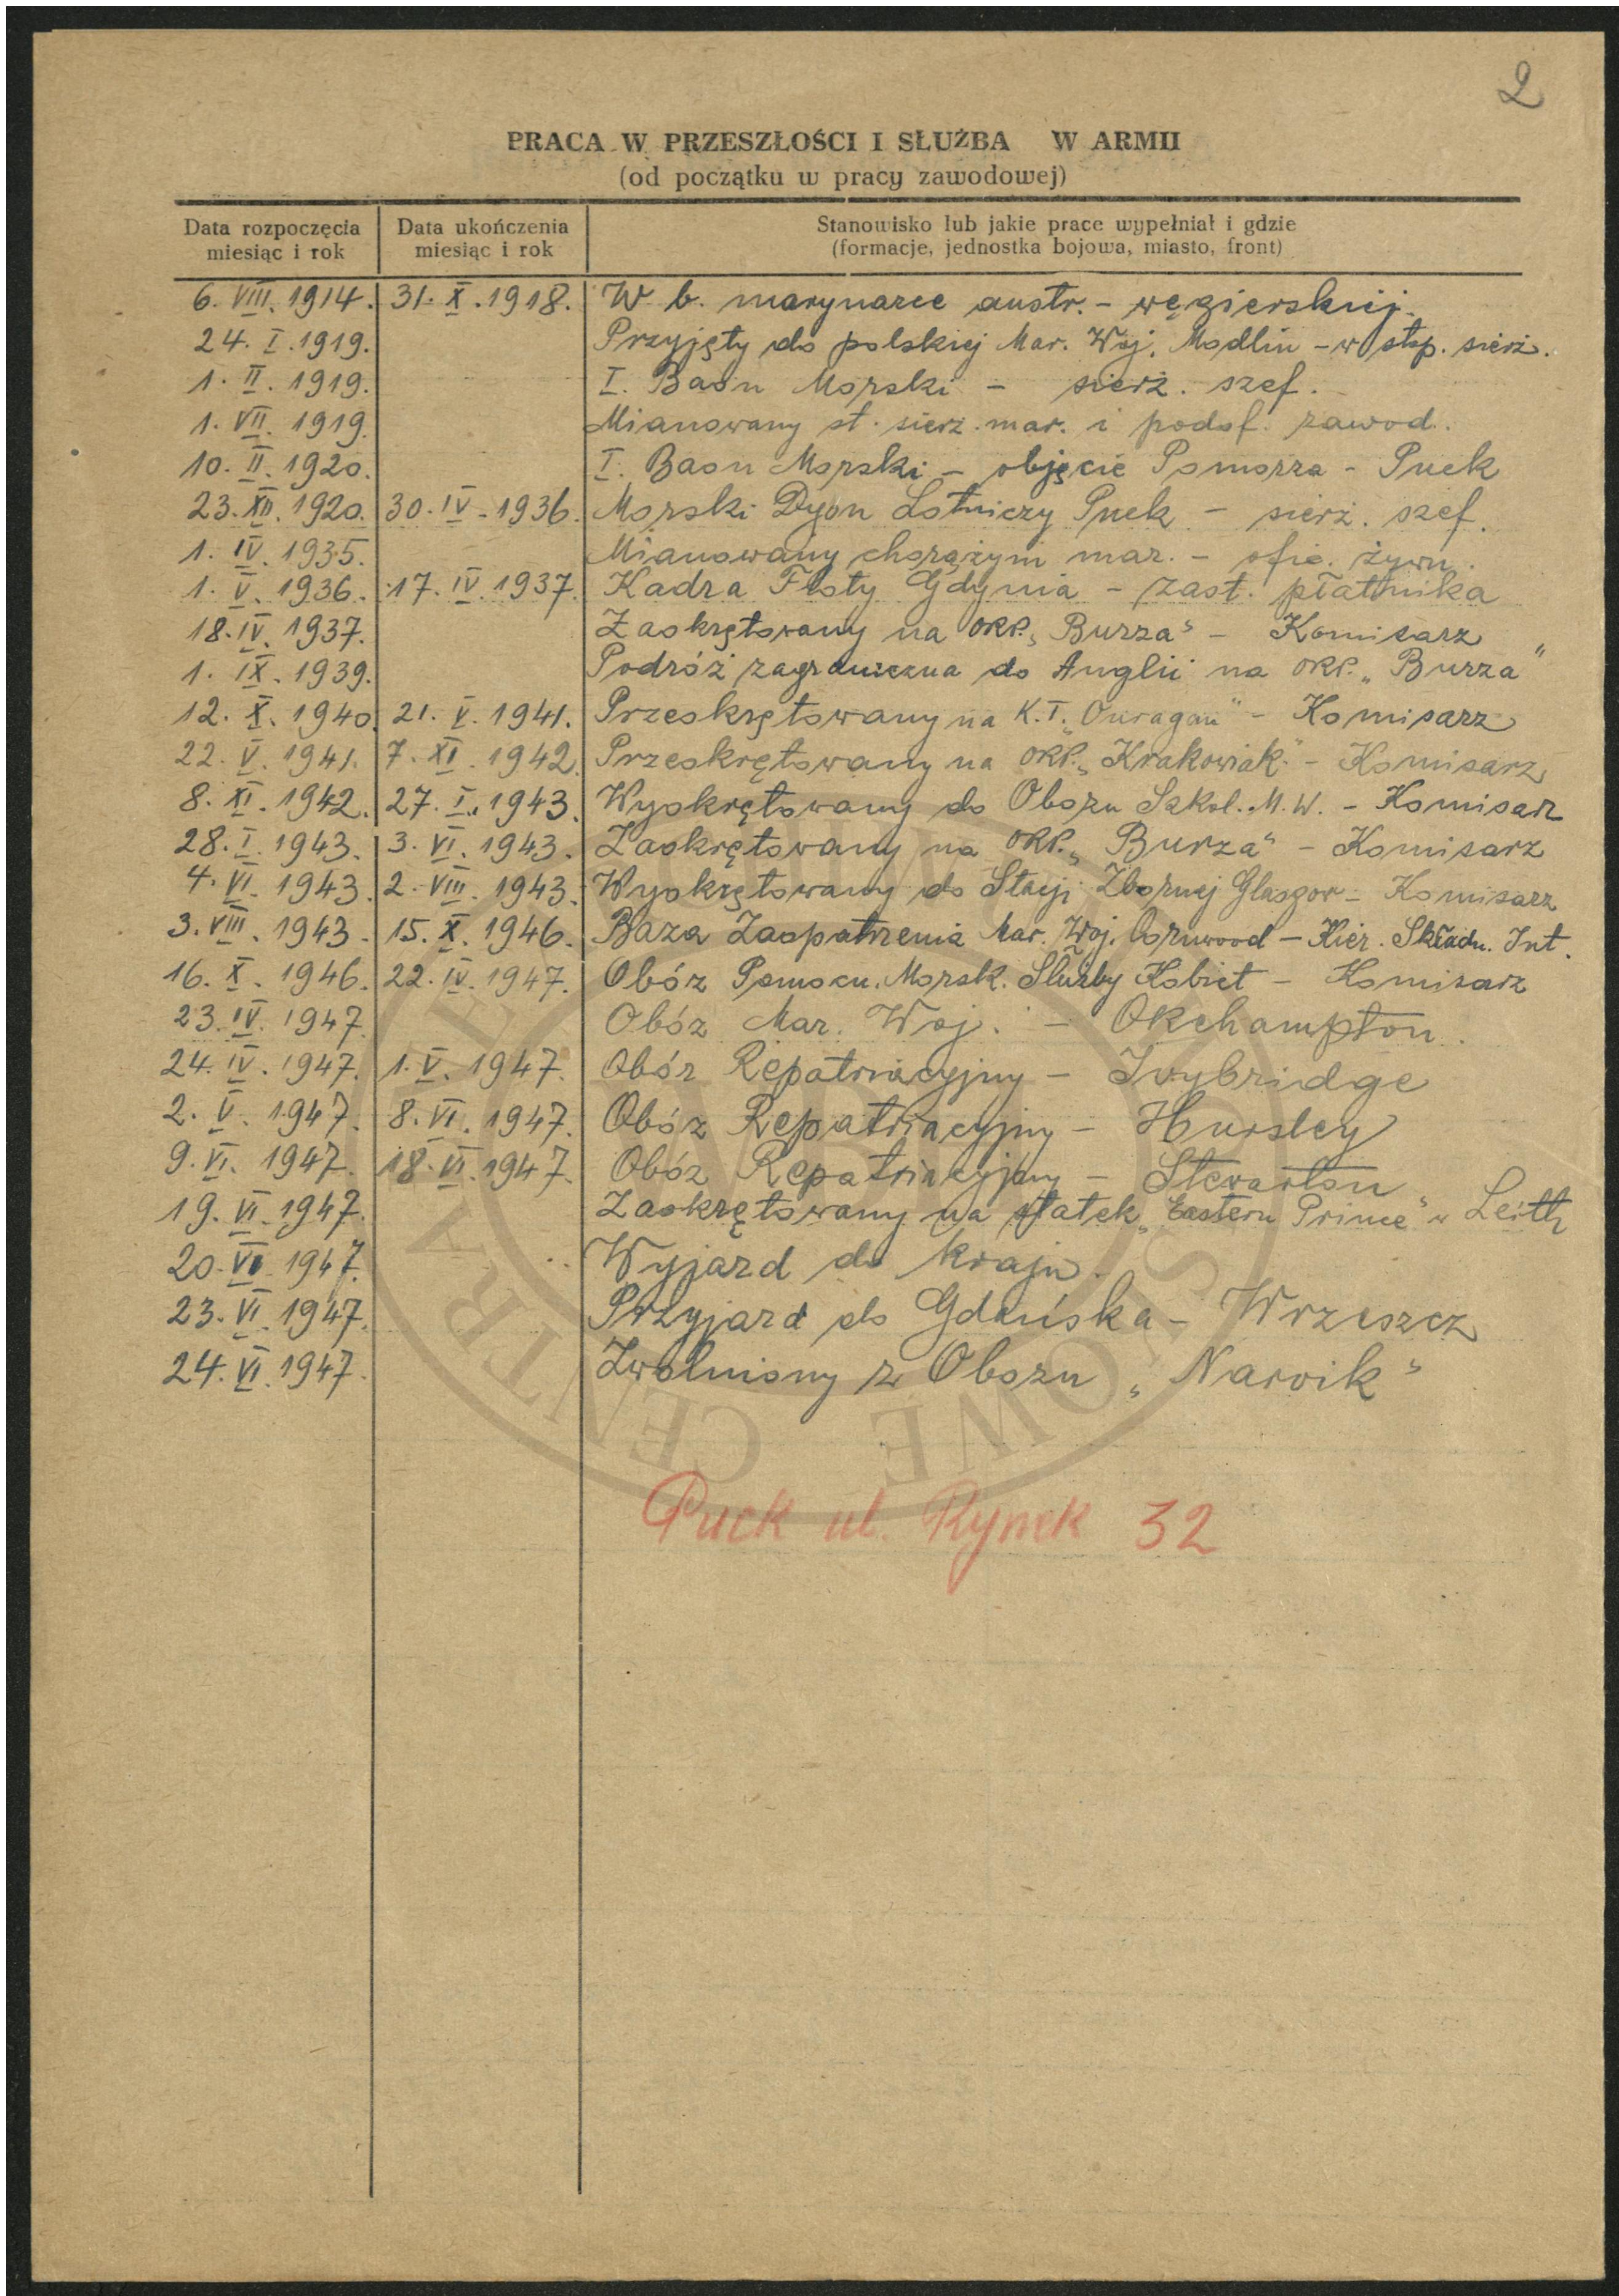 2
PRACA W PRZESZŁOŚCI I SŁUŻBA W ARMII
(od początku w pracy zawodowej)
Data rozpoczęcia miesiąc i rok | Data ukończenia miesiąc i rok | Stanowisko lub jakie prace wypełniał i gdzie (formacje, jednostka bojowa, miasto, front)
6. VIII. 1914. 31. X. 1918. W b. marynarce austr. - węgierskiej.
24. I. 1919. Przyjęty do polskiej Mar. Woj. Modlin - w stop. sierż.
1. II. 1919. I. Baon Morski - sierż. szef.
1. VII. 1919. Mianowany st. sierż. mar. i podof. zawod.
10. II. 1920. I. Baon Morski - objęcie Pomorza - Puck
23. XII. 1920. 30. IV. 1936. Morski Dyon Lotniczy Puck - sierż. szef.
1. IV. 1935. Mianowany chorążym mar. - ofic. żywn.
1. V. 1936. 17. IV. 1937. Kadra Floty Gdynia - zast. płatnika
18. IV. 1937. Zaokrętowany na ORP. „Burza" - Komisarz
1. IX. 1939. Podróż zagraniczna do Anglii na ORP. „Burza"
12. X. 1940. 21. V. 1941. Przeokrętowany na K.T. „Ouragan" - Komisarz
22. V. 1941. 7. XI. 1942. Przeokrętowany na ORP. „Krakowiak" - Komisarz
8. XI. 1942. 27. I. 1943. Wyokrętowany do Obozu Szkol. M.W. - Komisarz
28. I. 1943. 3. VI. 1943. Zaokrętowany na ORP. „Burza" - Komisarz
4. VI. 1943. 2. VIII. 1943. Wyokrętowany do Stacji Zbornej Glasgow - Komisarz
3. VIII. 1943. 15. X. 1946. Baza Zaopatrzenia Mar. Woj. - Kier. Składn. Int.
16. X. 1946. 22. IV. 1947. Obóz Pomocn. Morsk. Służby Kobiet - Komisarz
23. IV. 1947. Obóz Mar. Woj. - Okehampton.
24. IV. 1947. 1. V. 1947. Obóz Repatriacyjny - Ivybridge
2. V. 1947. 8. VI. 1947. Obóz Repatriacyjny - Hursley
9. VI. 1947. 18. VI. 1947. Obóz Repatriacyjny - Stewarton
19. VI. 1947. Zaokrętowany na statek „Eastern Prince" w Leith
20. VI. 1947. Wyjazd do kraju.
23. VI. 1947. Przyjazd do Gdańska - Wrzeszcz
24. VI. 1947. Zwolniony z Obozu „Narvik"
Puck ul. Rynek 32